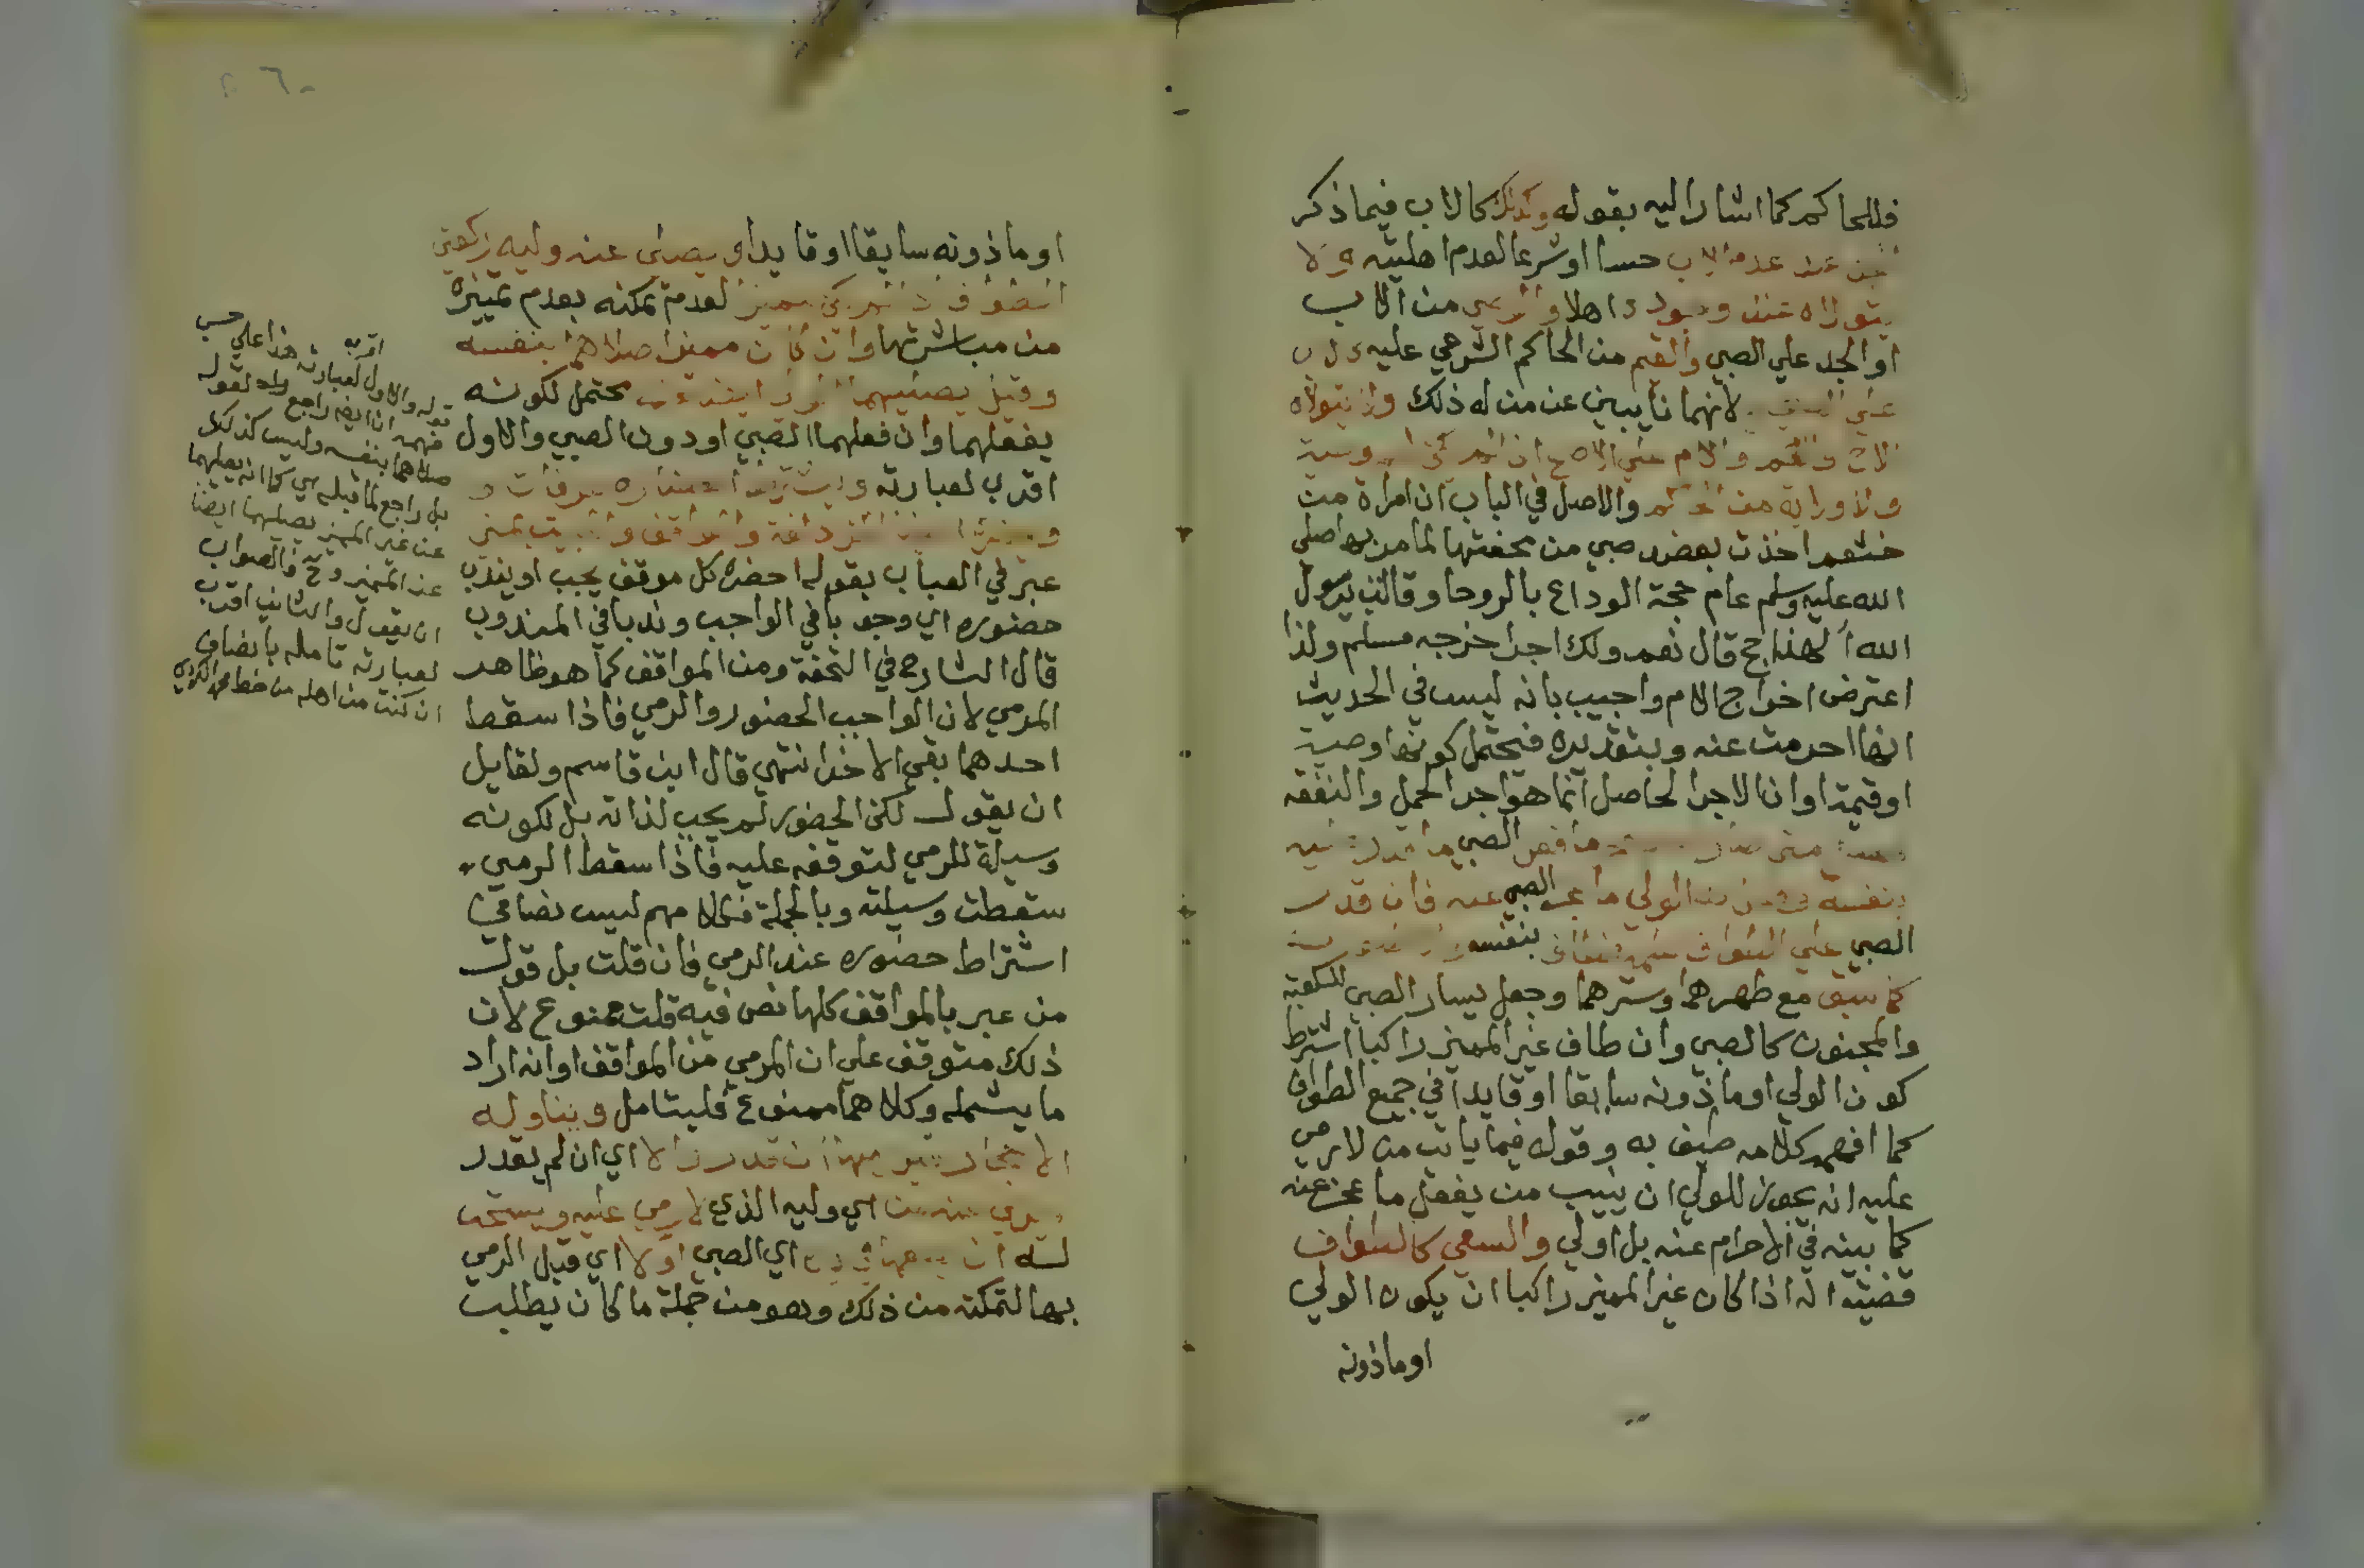 فللحاكم كما اشار اليه بقوله وكذلك كالاب فيما ذكر
عند عدم الاب حسا او شرعا لعدم اهليته ولا
يتولاه عند وجوده اهلا والوصي من الاب
او الجد علي الصبي والقيم من الحاكم الشرعي عليه
لانهما نايبين عن من له ذلك ولا يتولاه
الاخ والعم والام علي الاصح ان لم تكن وصية
ولا ولاية من الحاكم والاصل في الباب ان امراة من
خثعم اخذت بعضد صبي من محفتها لما مر بها صلي
الله عليه وسلم عام حجة الوداع بالروحا وقالت يرسول
الله ألهذا حج قال نعم ولك اجر اخرجه مسلم ولذا
اعترض اخراج الام واجيب بانه ليس في الحديث
انها احرمت عنه وبتقديره فيحتمل كونها وصية
او قيمة او ان الاجر الحاصل انما هو اجر الحمل والنفقه
الصبي ما قدر عليه
بنفسه الولي ما عجز الصبي عنه فان قدر
الصبي علي الطواف بنفسه
كما سبق مع طهرهما وسترهما وجعل يسار الصبي للكعبة
والمجنون كالصبي وان طاف غير المميز راكبا اشترط
كون الولي او ماذونه سابقا او قايدا في جميع الطواف
كما افهمه كلامه طيف به وقوله فيما ياتي من لا رمي
عليه انه يجوز للولي ان ينيب من يفعل ما عجز عنه
كما بينه في الاحرام عنه بل اولي والسعي كالطواف
قضيته انه اذا كان غير المميز راكبا ان يكون الولي
او ماذونه
او ماذونه سابقا او قايدا ويصلي عنه وليه ركعتي
الطواف ان لم يكن مميزا لعدم تمكنه بعدم تمييزه
من مباشرتهما وان كان مميزا صلاهما بنفسه
وقيل يصليهما الولي ايضا محتمل لكونه
يفعلهما وان فعلهما الصبي او دون الصبي والاول
اقرب لعبارته ويشترط احضاره عرفات و
المزدلفة والمواقف والمبيت بمني
عبر في العباب بقوله احضره كل موقف يجب او يندب
حضوره اي وجوبا في الواجب وندبا في المندوب
قال الشارح في التحفة ومن المواقف كما هو ظاهر
المرمي لان الواجب الحضور والرمي فاذا سقط
احدهما بقي الاخر انتهي قال ابن قاسم ولقايل
ان يقول لكن الحضور لم يجب لذاته بل لكونه
وسيلة للرمي لتوقفه عليه فاذا سقط الرمي
سقطت وسيلته وبالجملة فكلامهم ليس نصا في
اشتراط حضوره عند الرمي فان قلت بل قول
من عبر بالمواقف كلها نص فيه قلت ممنوع لان
ذلك متوقف علي ان المرمي من المواقف او انه اراد
ما يشمله وكلاهما ممنوع فليتامل ويناوله
الاحجار يرميها ان قدر والا اي ان لم يقدر
رمي عنه من اي وليه الذي لا رمي عليه ويستحب
له ان يضعها في يده اي الصبي اولا اي قبل الرمي
بها لتمكنه من ذلك وهو من جملة ما كان يطلب
قوله والاول اقرب لعبارته هذا علي حسب
فهمه ان ايضا راجع والا لقوله
صلاهما بنفسه وليس كذلك
بل راجع لما قبله يعني كما انه يصليهما
عن غير المميز يصليهما ايضا
عن المميز وح فالصواب
ان يقول والثاني اقرب
لعبارته تامله بانصاف
ان كنت من اهله من خط محمد الكردي